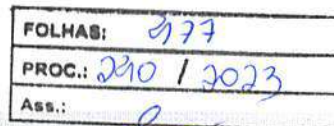 FOLHAS: 2177
PROC.: 240 / 2023
Ass.: